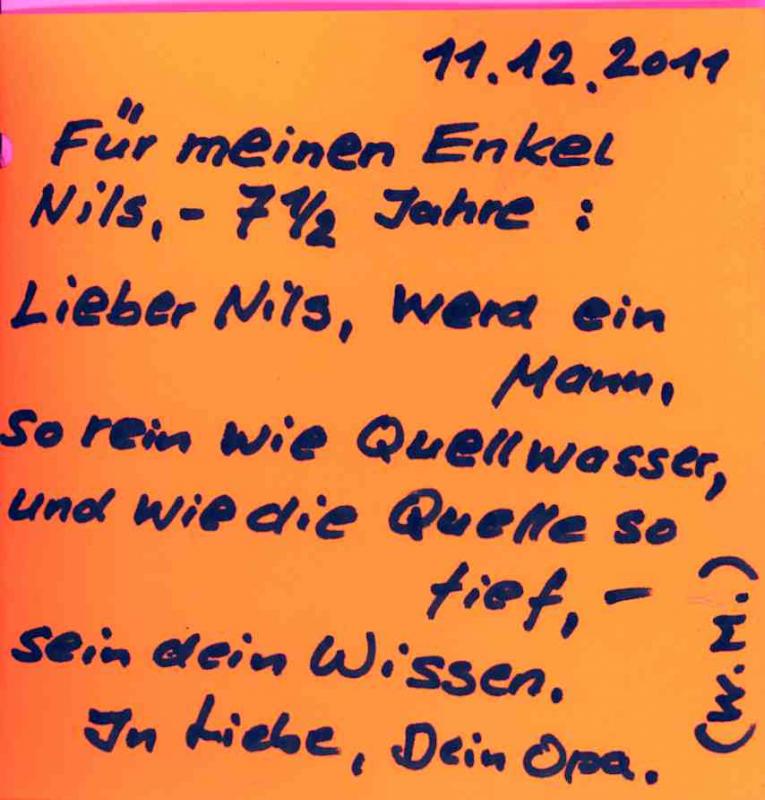 11.12.2011
Für meinen Enkel
Nils,- 7 1/2 Jahre :
Lieber Nils, werd ein
Mann,
so rein wie Quellwasser,
und wie die Quelle so
tief, -
sein dein Wissen.
In Liebe, Dein Opa.
(W.M.)